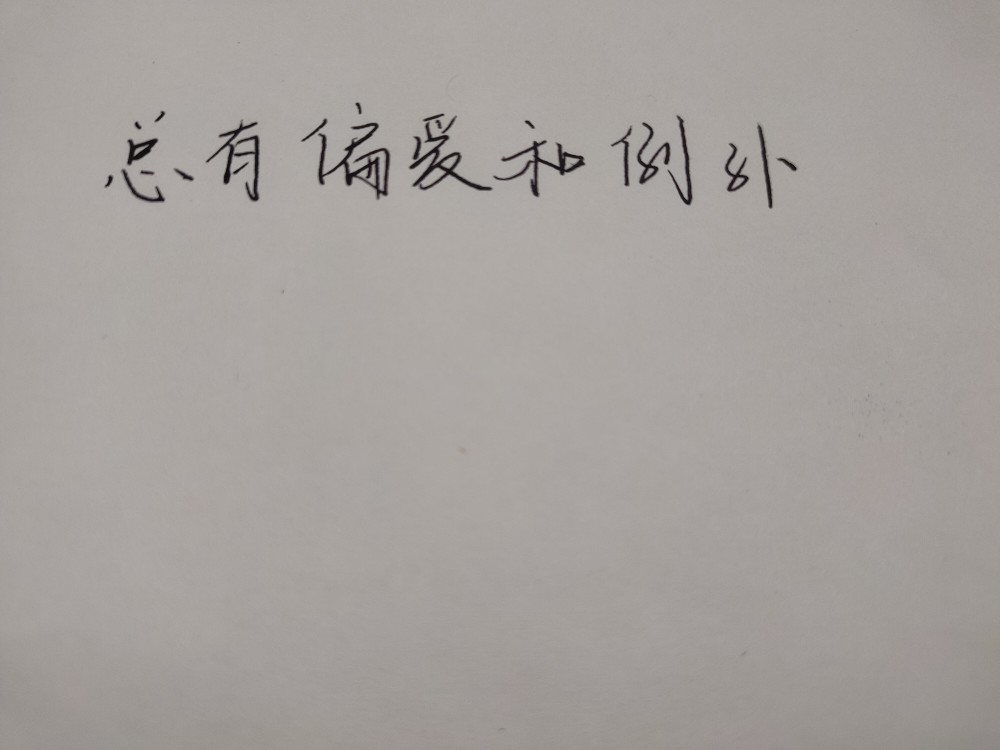 总有偏爱和例外